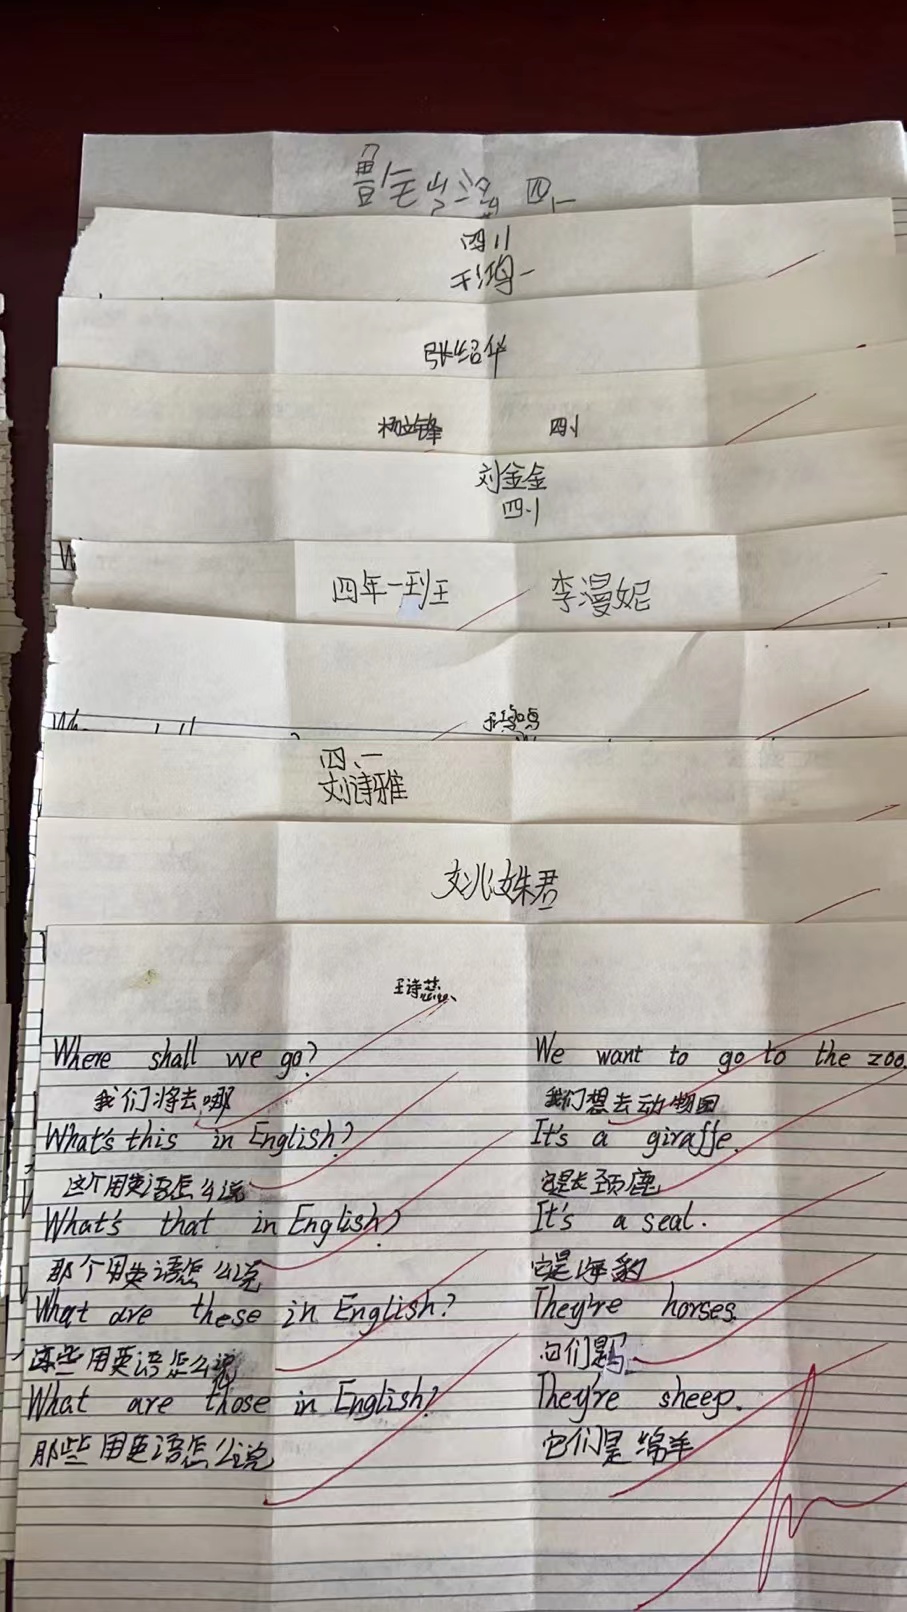 四
四八
张绍华
杨文锋 四八
刘金金
四八
四年一班 李漫妮
四、一
刘诗雅
姚姝君
王诗慧
Where shall we go? We want to go to the zoo.
我们将去哪 我们想去动物园
What's this in English? It's a giraffe.
这个用英语怎么说 它是长颈鹿
What's that in English? It's a seal.
那个用英语怎么说 它是海豹
What are these in English? They're horses.
这些用英语怎么说 它们是马
What are those in English? They're sheep.
那些用英语怎么说 它们是绵羊